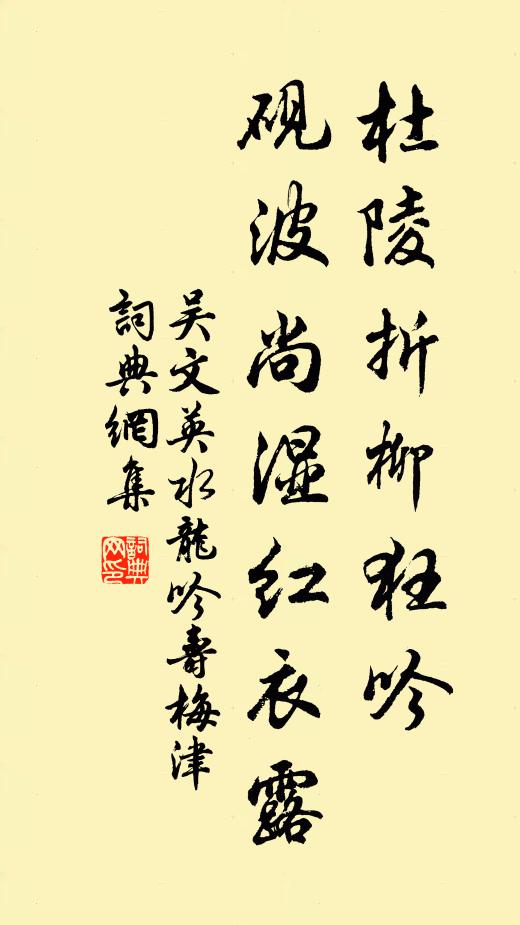 杜陵折柳狂吟
砚波尚湿红衣露
吴文英水龍吟壽梅津
詞典網集
詞典网印